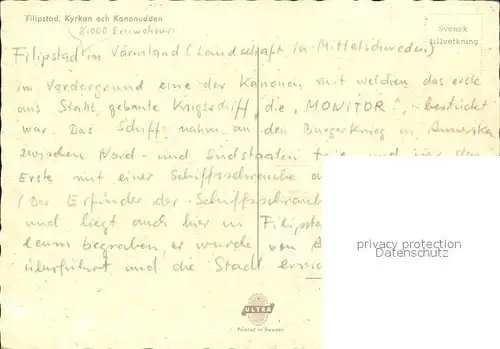 Filipstad. Kyrkan och Kanonudden
Svensk
tillverkning
8.000 Einwohner
Filipstad in Värmland (Landschaft in Mittelschweden)
im Vordergrund eine der Kanonen mit welchen das erste
aus Stahl gebaute Krigsschiff, die "MONITOR", bestückt
war. Das Schiff nahm an den Bürgerkrieg in Amerika
zwischen Nord- und Südstaaten teil und war das
Erste mit einer Schiffsschraube
(Der Erfinder der Schiffsschraube
und liegt auch hier in Filipstad
leum begraben, er wurde von
überführt und die Stadt
privacy protection
Datenschutz
ULTRA
Printed in Sweden